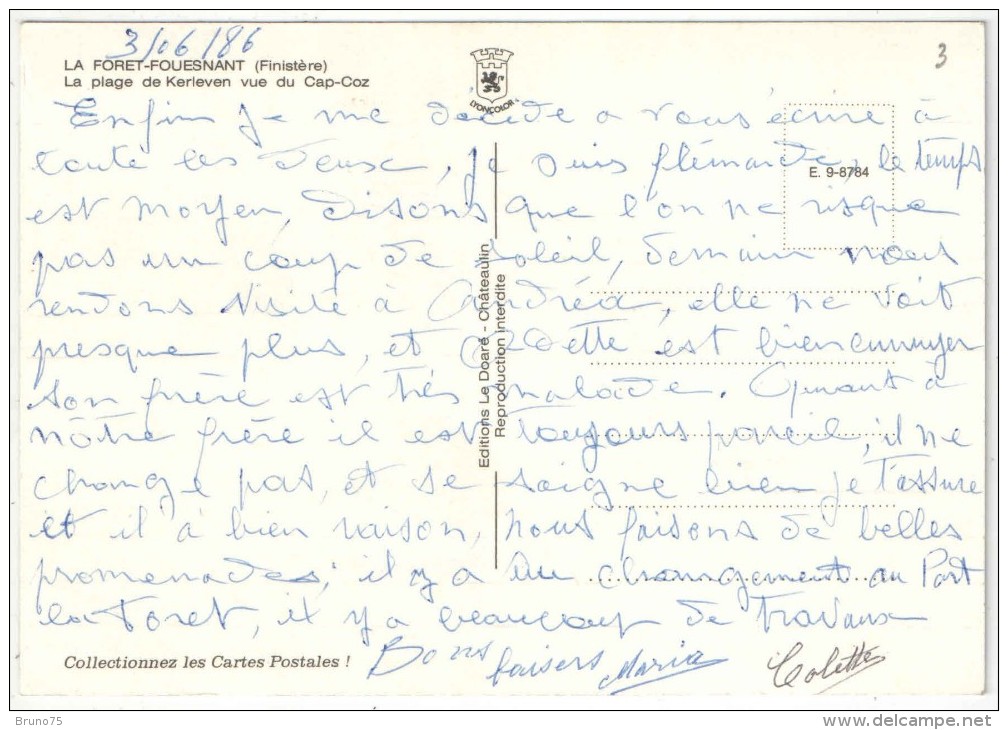 3/06/86
3
LA FORET-FOUESNANT (Finistère)
La plage de Kerleven vue du Cap-Coz
LYONCOLOR
E. 9-8784
Enfin je me décide a vous écrire à
toute les deux, je suis flémarde, le temps
est moyen, disons que l'on ne risque
pas un coup de soleil, demain nous
rendons visite à Andréa, elle ne voit
presque plus, et Odette est bien ennuyer
son frère est très malade. Quant à
nôtre frère il est toujours pareil, il ne
change pas, et se soigne bien je t'assure
et il à bien raison, nous faisons de belles
promenades, il y a du changement au Port
la Foret, il y a beaucoup de travaux
Bons baisers Maria Colette
Editions Le Doaré - Châteaulin
Reproduction interdite
Collectionnez les Cartes Postales !
Bruno75
www.delcampe.net